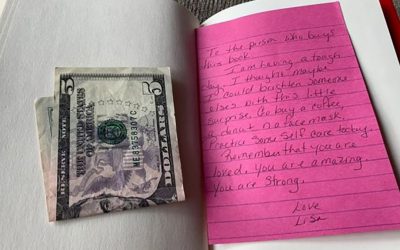 5
THE UNITED STATES
OF AMERICA
FEDERAL RESERVE NOTE
FIVE DOLLARS
To the person who buys
this book:
I am having a tough
day. I thought maybe
I could brighten someone
else's with this little
surprise. Go buy a coffee,
a donut or a face mask.
Practice some self care today.
Remember that you are
loved. you are amazing.
You are strong.
Love
Lisa